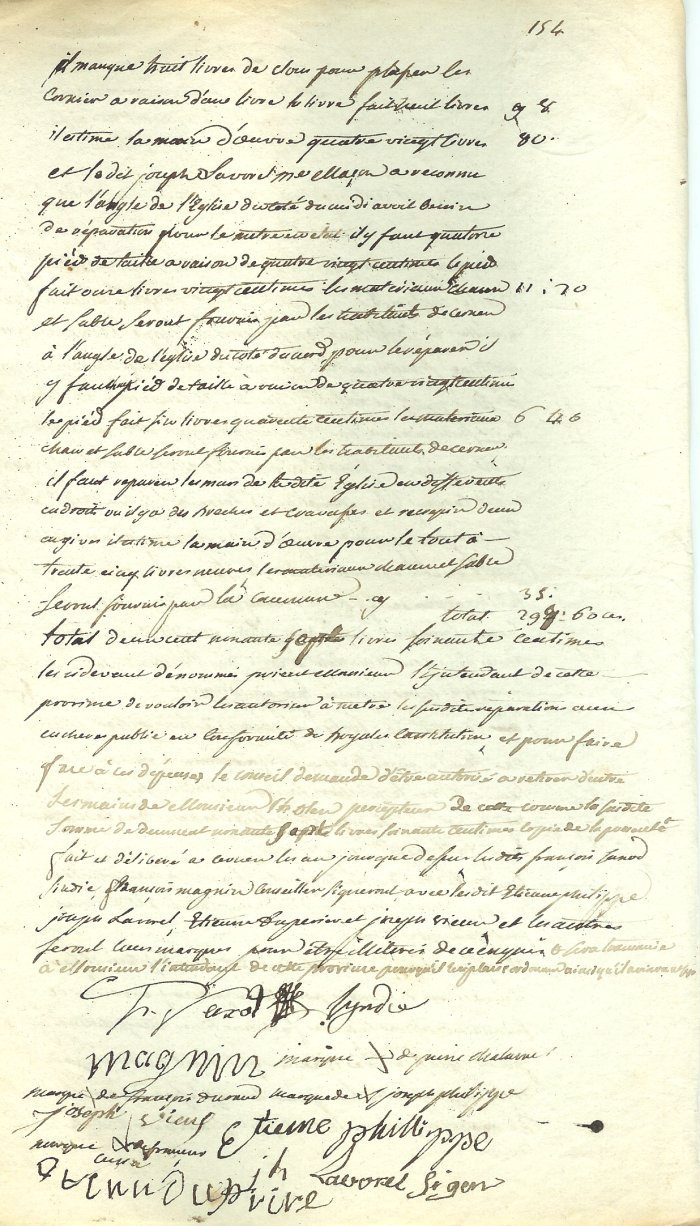 154
il manque huit livres de clous pour placer les
cornier a raison d'une livre le livre fait huit livres 8
il estime la main d'œuvre quatre vingt livres 80.
et le dit joseph Lavorel me Maçon a reconnu
que l'angle de l'Eglise du coté du midi avoit besoin
de réparation pour le metre en état il y faut quatorze
pied de taille a raison de quatre vingt centimes le pied
fait onze livres vingt centimes les materiaux chaux 11 : 20
et sable seront fournis par les habitants de cernex
à l'angle de l'eglise du coté du nord pour le réparer il
y faut pied de taille à raison de quatre vingt centimes
le pied fait six livres quarante centimes les materiaux 6 40
chaux et sable seront fournis par les habitants de cernex.
il faut reparer les murs de la dite Église en differents
endroit ou il y a des breches et cravasses et
il estime la main d'œuvre pour le tout à
trente cinq livres neuves les materiaux chaux et sable
seront fournis par la commune 35:
total 60 ces.
total deux cent nonante sept livres soixante centimes
les cidevant dénommés prient Monsieur l'Intendant de cette
province de vouloir les autoriser à metre les susdites réparations aux
encheres public en conformité des Royales Constitution et pour faire
face à ces dépenses le conseil demande d'être autorisé a retirer d'entre
les mains de Monsieur percepteur de cette commune la susdite
somme de deux cent nonante sept livres soixante centimes copie de la presente
fait et déliberé a cernex les an jour que dessus les dits françois
sindic françois magnin Conseiller signeront avec les dit Etienne philippe
joseph Lavorel, Etienne Duperier et joseph vieux et les autres
seront leurs marques pour etre illiteris de ce enquis
à Monsieur l'intendant de cette province pour qu'il lui plaise ordonner ainsi qu'il
syndic
magnin marque de pierre
marque de françois marque de joseph philippe
joseph vieux
marque de françois Etienne philippe
Lavorel Signe